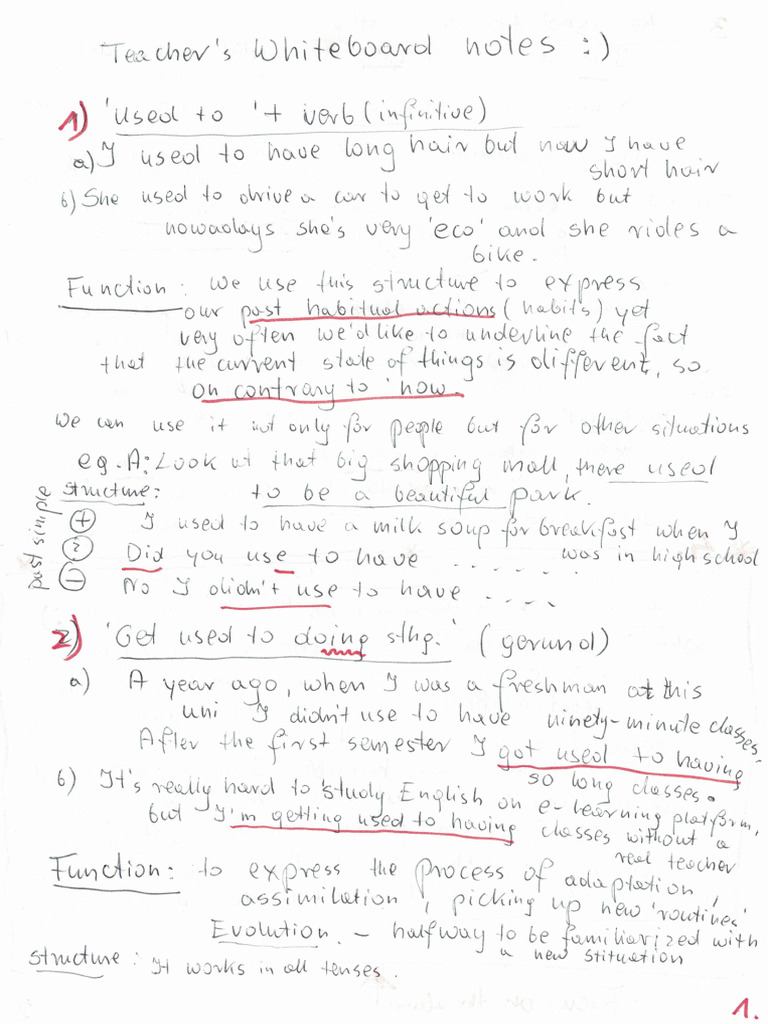 Teacher's Whiteboard notes :)
1) 'Used to' + verb (infinitive)
a) I used to have long hair but now I have
short hair
b) She used to drive a car to get to work but
nowadays she's very 'eco' and she rides a
bike.
Function: we use this structure to express
our past habitual actions (habits) yet
very often we'd like to underline the fact
that the current state of things is different, so
on contrary to 'now.
We can use it not only for people but for other situations
eg. A: Look at that big shopping mall, there used
to be a beautiful park.
structure:
past simple
+ I used to have a milk soup for breakfast when I
was in high school
? Did you use to have ......
- No I didn't use to have ....
2) 'Get used to doing sthg.' (gerund)
a) A year ago, when I was a freshman at this
uni I didn't use to have ninety-minute classes.
After the first semester I got used to having
so long classes.
b) It's really hard to study English on e-learning platform,
but I'm getting used to having classes without a
real teacher
Function: to express the process of adaptation,
assimilation, picking up new 'routines'
Evolution. - halfway to be familiarized with
a new stituation
structure: It works in all tenses.
1.